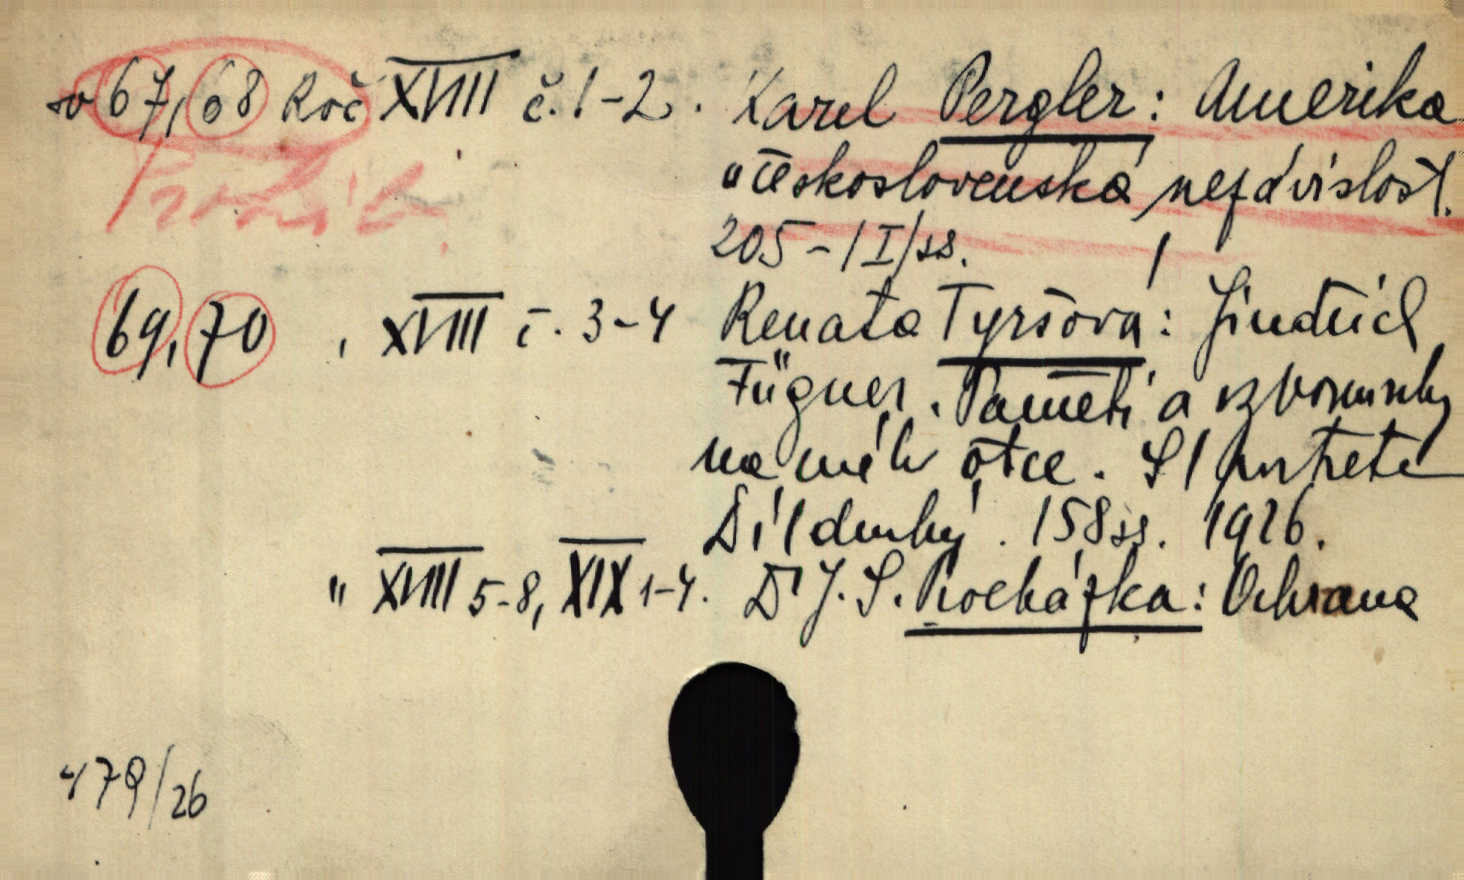 sv 67, 68 Roč XVIII č. 1-2. Karel Pergler: Amerika
a československá nezávislost.
205-/I/ss.
69, 70 , XVIII č. 3-4 Renata Tyršová: Jindřich
Fügner. Paměti a vzpomínky
na mého otce. S 1 portretem
Díl druhý. 158ss. 1926.
" XVIII 5-8, XIX 1-4. Dr J. S. Procházka: Ochrana
479/26